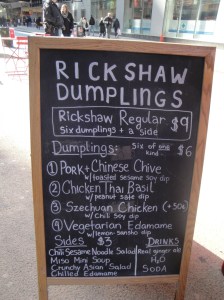 RICKSHAW
DUMPLINGS
Rickshaw Regular $9
Six dumplings + a side
Dumplings: six of one kind... $6
① Pork + Chinese Chive
w/ toasted sesame soy dip
② Chicken Thai Basil
w/ peanut satay dip
③ Szechuan Chicken (+50¢)
w/ chili soy dip
④ Vegetarian Edamame
w/ lemon sansho dip
Sides $3
Chili Sesame Noodle Salad
Miso Mini Soup
Crunchy Asian Salad
Chilled Edamame
DRINKS
Real ginger ale
H2O
SODA